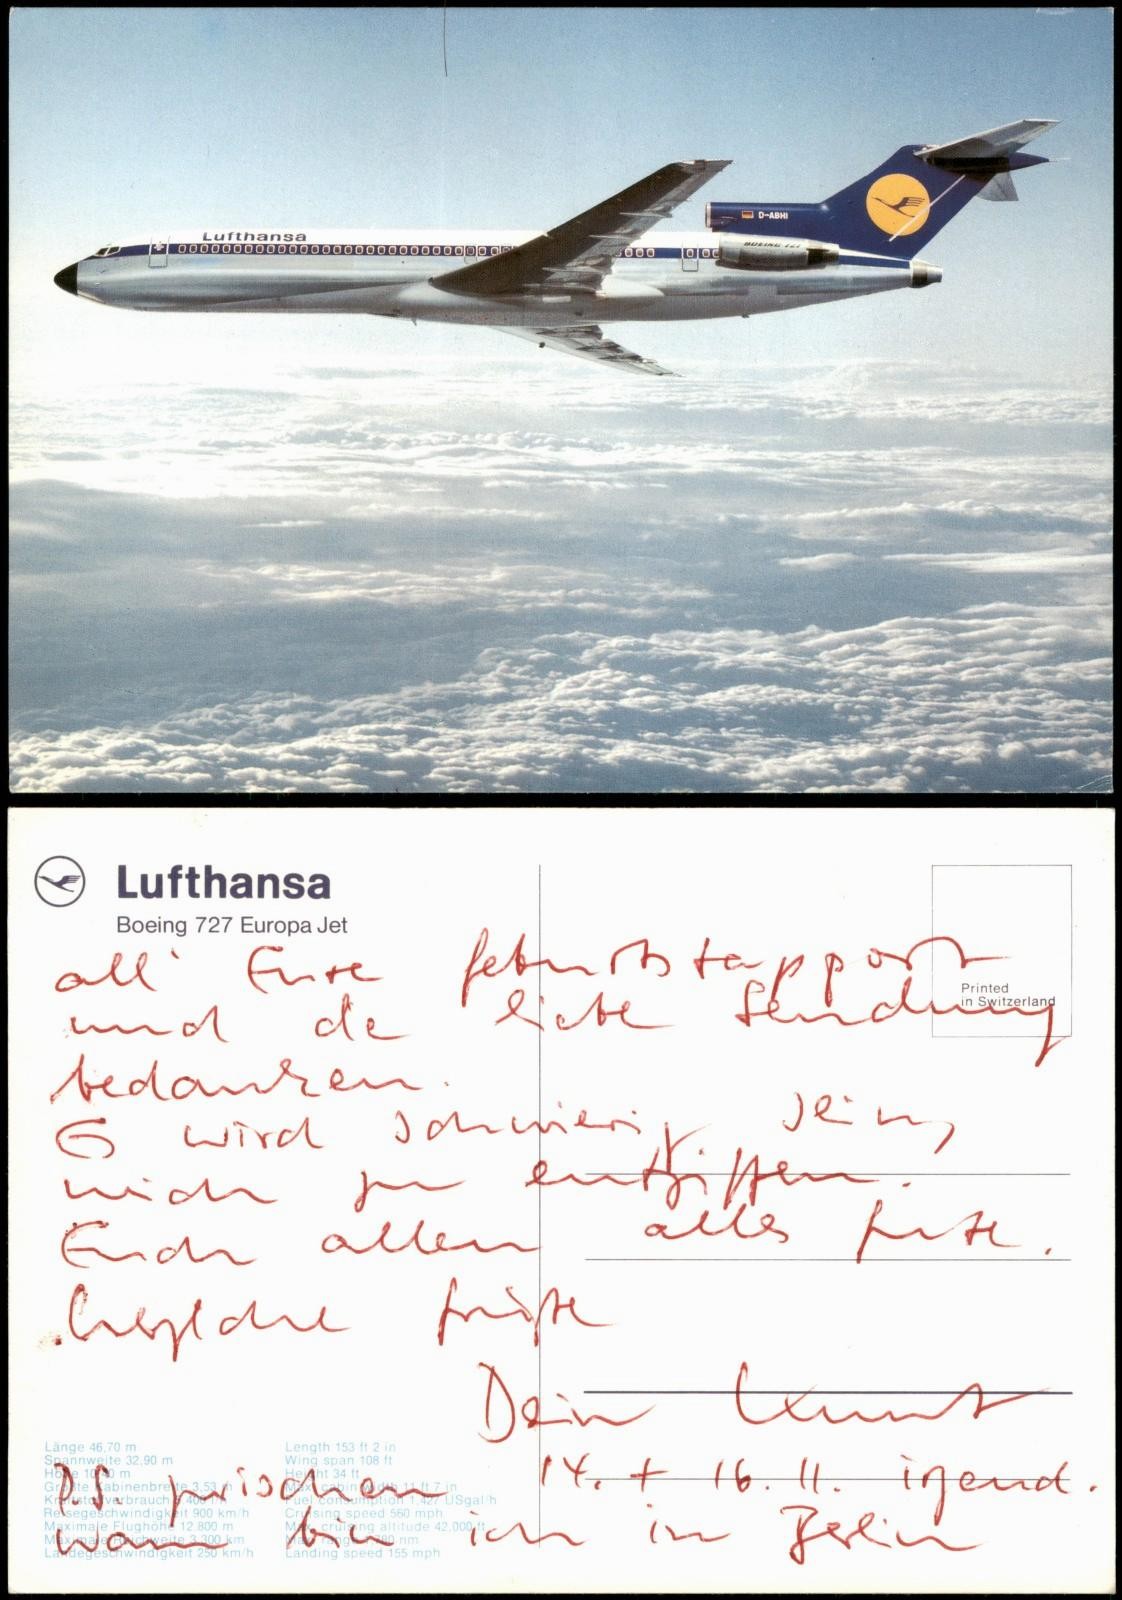 Lufthansa
D-ABHI
BOEING 727
Lufthansa
Boeing 727 Europa Jet
Printed
in Switzerland
all' Eure Geburtstagspost
und die liebe Sendung
bedanken.
Es wird schwierig sein,
mich zu entziffern.
Euch allen alles Gute.
herzliche Grüße
Dein
P.S. zwischen 14. + 16. 11. irgend.
wann bin ich in Berlin
Länge 46,70 m
Spannweite 32,90 m
Höhe 10,40 m
Größte Kabinenbreite 3,53 m
Kraftstoffverbrauch 5.400 l/h
Reisegeschwindigkeit 900 km/h
Maximale Flughöhe 12.800 m
Maximale Reichweite 3.300 km
Landegeschwindigkeit 250 km/h
Length 153 ft 2 in
Wing span 108 ft
Height 34 ft
Max. cabin width 11 ft 7 in
Fuel consumption 1,427 USgal/h
Cruising speed 560 mph
Max. cruising altitude 42,000 ft
Landing speed 155 mph